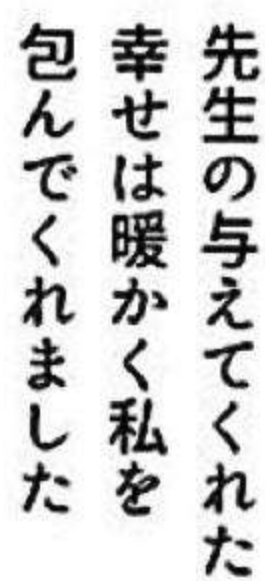 先生の与えてくれた
幸せは暖かく私を
包んでくれました